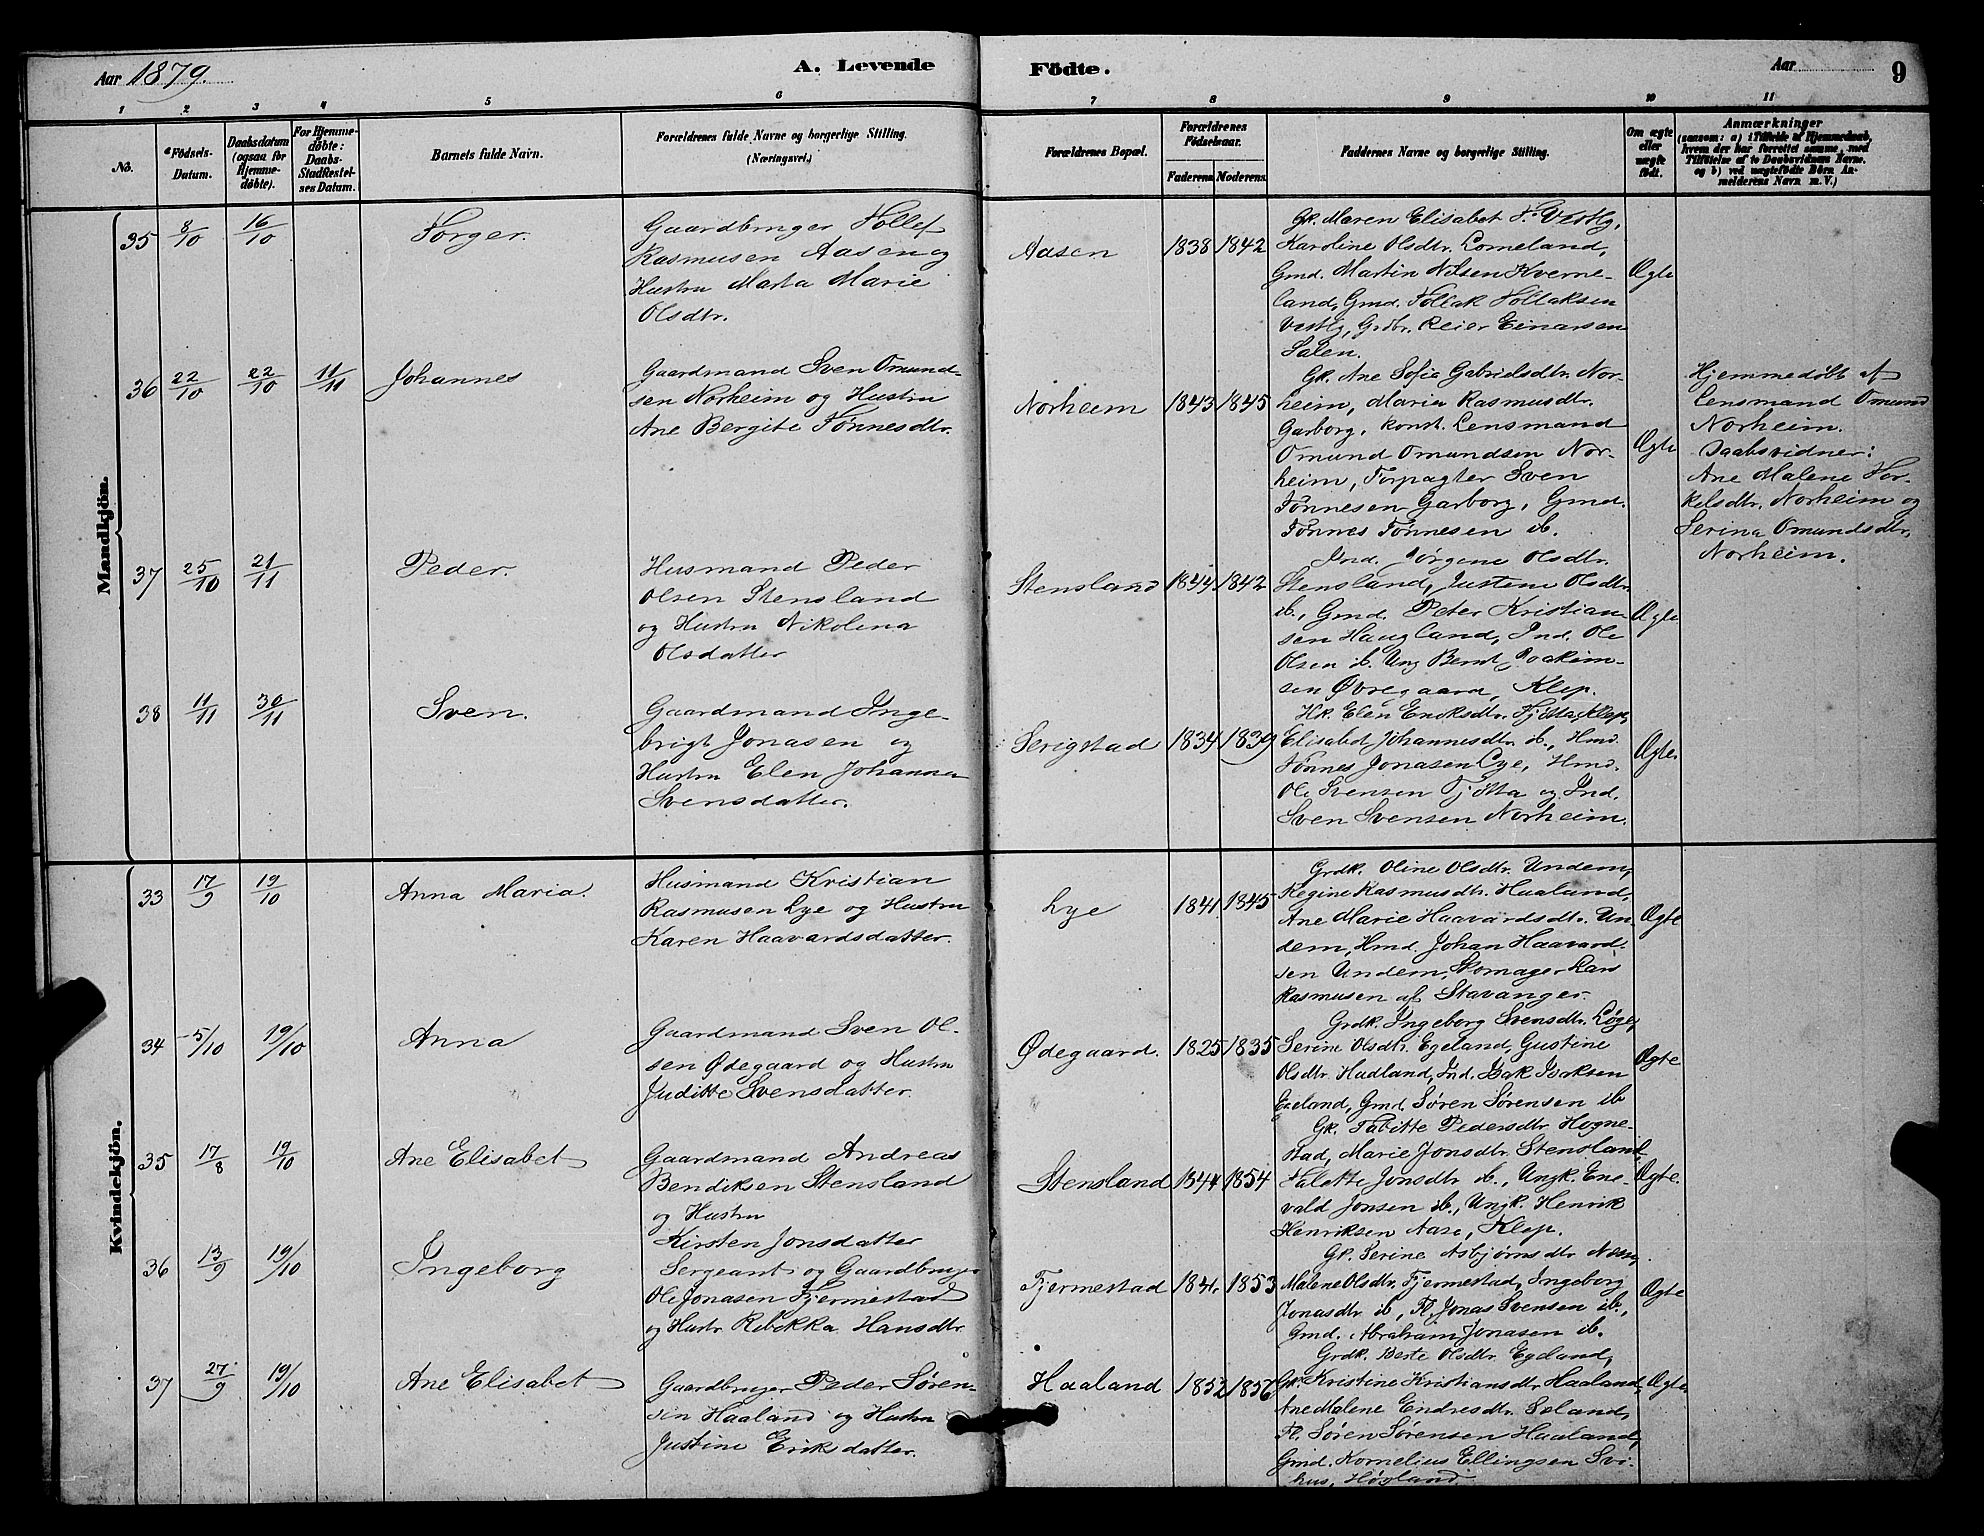 Aar 1879.
A. Levende Födte.
Aar
9
1 2 3 4 5 6 7 8 9 10 11
No.
Födsels-Datum.
Daabsdatum (ogsaa for Hjemme-døbte).
For Hjemme-døbte: Daabs-Stadfæstelses Datum.
Barnets fulde Navn.
Forældrenes fulde Navne og borgerlige Stilling.
(Næringsvei.)
Forældrenes Bopæl.
Forældrenes Fødselsaar.
Faderens. Moderens.
Faddernes Navne og borgerlige Stilling.
Om ægte eller uægte født.
Anmærkninger
(saasom: a) i Tilfælde af Hjemmedaab,
hvem der har forrettet samme, med
Tilföielse af to Daabsvidners Navne.
og b) ved uægtefödte Börn An-
melderens Navn m. V.)
Mandkjön.
35 8/10 16/10 Torger.
Gaardbruger Tollef
Rasmusen Aasen og
Hustru Marta Marie
Olsdtr.
Aasen 1838 1842
Gk. Maren Elisabet T. Vestly,
Karoline Olsdtr. Lomeland,
Gmd. Martin Nilsen Kverne-
land, Gmd. Tollak Tollaksen
Vestly, Grdbr. Reier Einarsen
Salen.
Ægte
36 22/10 22/10 11/11 Johannes
Gaardmand Sven Omund-
sen Norheim og Hustru
Ane Bergite Tønnesdtr.
Norheim 1843 1845
Gk. Ane Sofie Gabrielsdtr. Nor-
heim, Maria Rasmusdtr.
Garborg, konst. Lensmand
Omund Omundsen Nor-
heim, Forpagter Sven
Tønnesen Garborg, Gmd.
Tønnes Tønnesen ib.
Ægte
Hjemmedøbt af
Lensmand Omund
Norheim.
Daabsvidner:
Ane Malene Tor-
kelsdtr. Norheim og
Serina Omundsdtr.
Norheim.
37 25/10 21/11 Peder.
Husmand Peder
Olsen Stensland
og Hustru Nikolina
Olsdatter
Stensland 1844 1842
Ind. Jørgene Olsdtr.
Stensland, Justine Olsdtr.
ib., Gmd. Peter Kristian-
sen Haugland, Ind. Ole
Olsen ib. Ung. Bernt Joakim-
sen Øvregaard, Klep.
Ægte
38 11/11 30/11 Sven.
Gaardmand Inge-
brigt Jonasen og
Hustru Elen Johanna
Svensdatter.
Serigstad 1834 1839
Hk. Elen Eriksdtr. Tjøtta, Klep,
Elisabet Johannesdtr. ib., Hmd.
Tønnes Jonasen Lye, Hmd.
Ole Svensen Tjøtta og Ind.
Sven Svensen Norheim.
Ægte
Kvindekjön.
33 17/9 19/10 Anna Maria.
Husmand Kristian
Rasmusen Lye og Hustru
Karen Haavardsdatter.
Lye 1841 1845
Grdk. Oline Olsdtr. Undem,
Regine Rasmusdtr. Haaland,
Ane Marie Haavardsdtr. Un-
dem, Hmd. Johan Haavard-
sen Undem, Skomager Lars
Rasmusen af Stavanger.
Ægte
34 5/10 19/10 Anna
Gaardmand Sven Ol-
sen Ødegaard og Hustru
Juditte Svensdatter.
Ødegaard. 1825 1835
Grdk. Ingeborg Svensdtr. Løge,
Serine Olsdtr. Egeland, Gustine
Olsdtr. Hadland, Ind. Isak Isaksen
Egeland, Gmd. Søren Sørensen ib
Ægte
35 17/8 19/10 Ane Elisabet
Gaardmand Andreas
Bendiksen Stensland
og Hustru
Kirsten Jonsdatter
Stensland 1844 1854
Gk. Tabitte Pedersdtr Hogne-
stad, Marie Jonsdtr. Stensland,
Talette Jonsdtr ib., Ungk. Ene-
vald Jonsen ib., Ungk. Henrik
Henriksen Aase, Klep.
Ægte.
36 13/9 19/10 Ingeborg
Sergeant og Gaardbruger
Ole Jonasen Fjermestad
og Hustr. Rebekka Hansdtr.
Fjermestad 1841 1853
Gk. Serine Asbjørnsdtr
Malene Olsdtr. Fjermestad, Ingeborg
Jonasdtr ib, Fl. Jonas Svensen ib.,
Gmd. Abraham Jonasen ib.
Ægte
37 27/9 19/10 Ane Elisabet
Gaardbruger Peder Søren-
sen Haaland og Hustru
Justine Eriksdatter.
Haaland 1852 1856
Grdk. Berte Olsdtr. Egeland,
Gk. Kristine Kristiansdtr. Haaland,
Ane Malene Endresdtr. Seland,
Fl. Søren Sørensen Haaland,
Gmd. Kornelius Ellingsen Svi-
hus, Høgland
Ægte